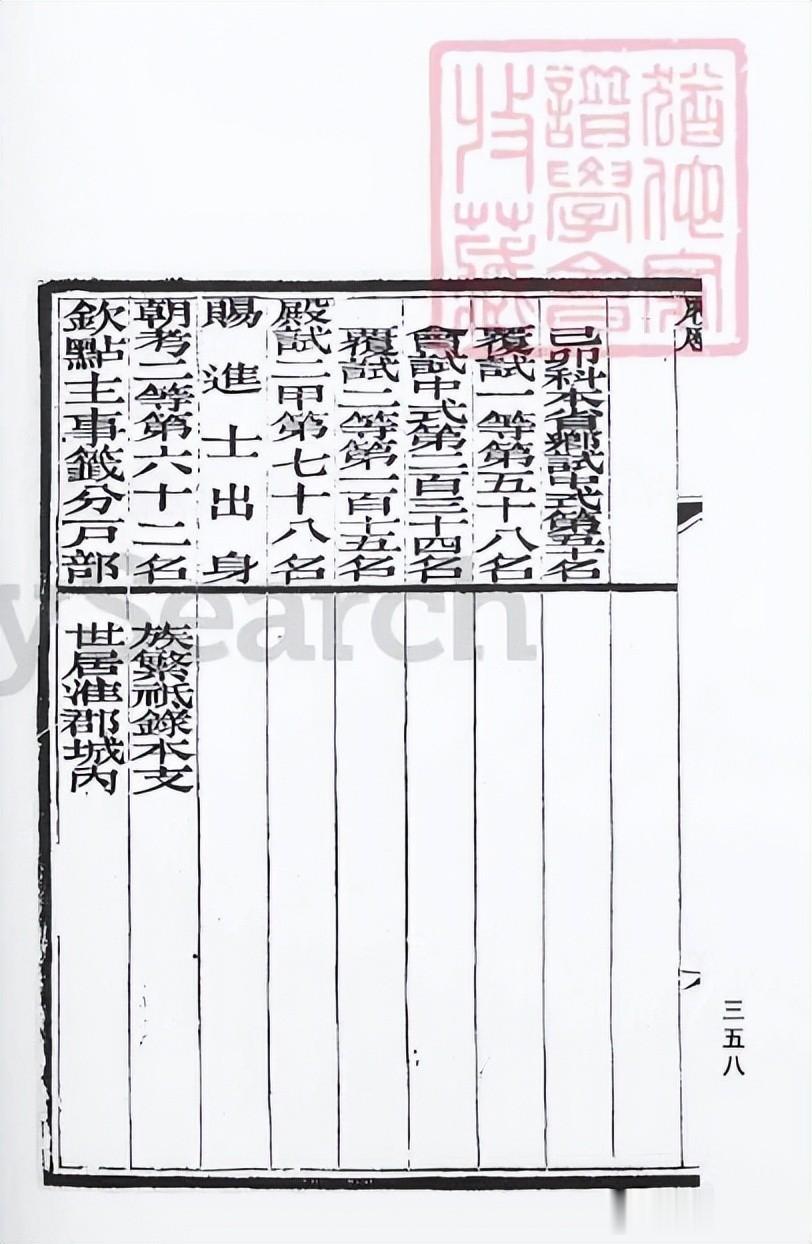 己卯科本省鄉試中式第五十名
覆試一等第五十八名
會試中式第二百三十四名
覆試二等第一百十五名
殿試二甲第七十八名
賜進士出身
朝考二等第六十二名
欽點主事籤分戶部
族繁祇錄本支
世居淮郡城內
三五八
ySearch